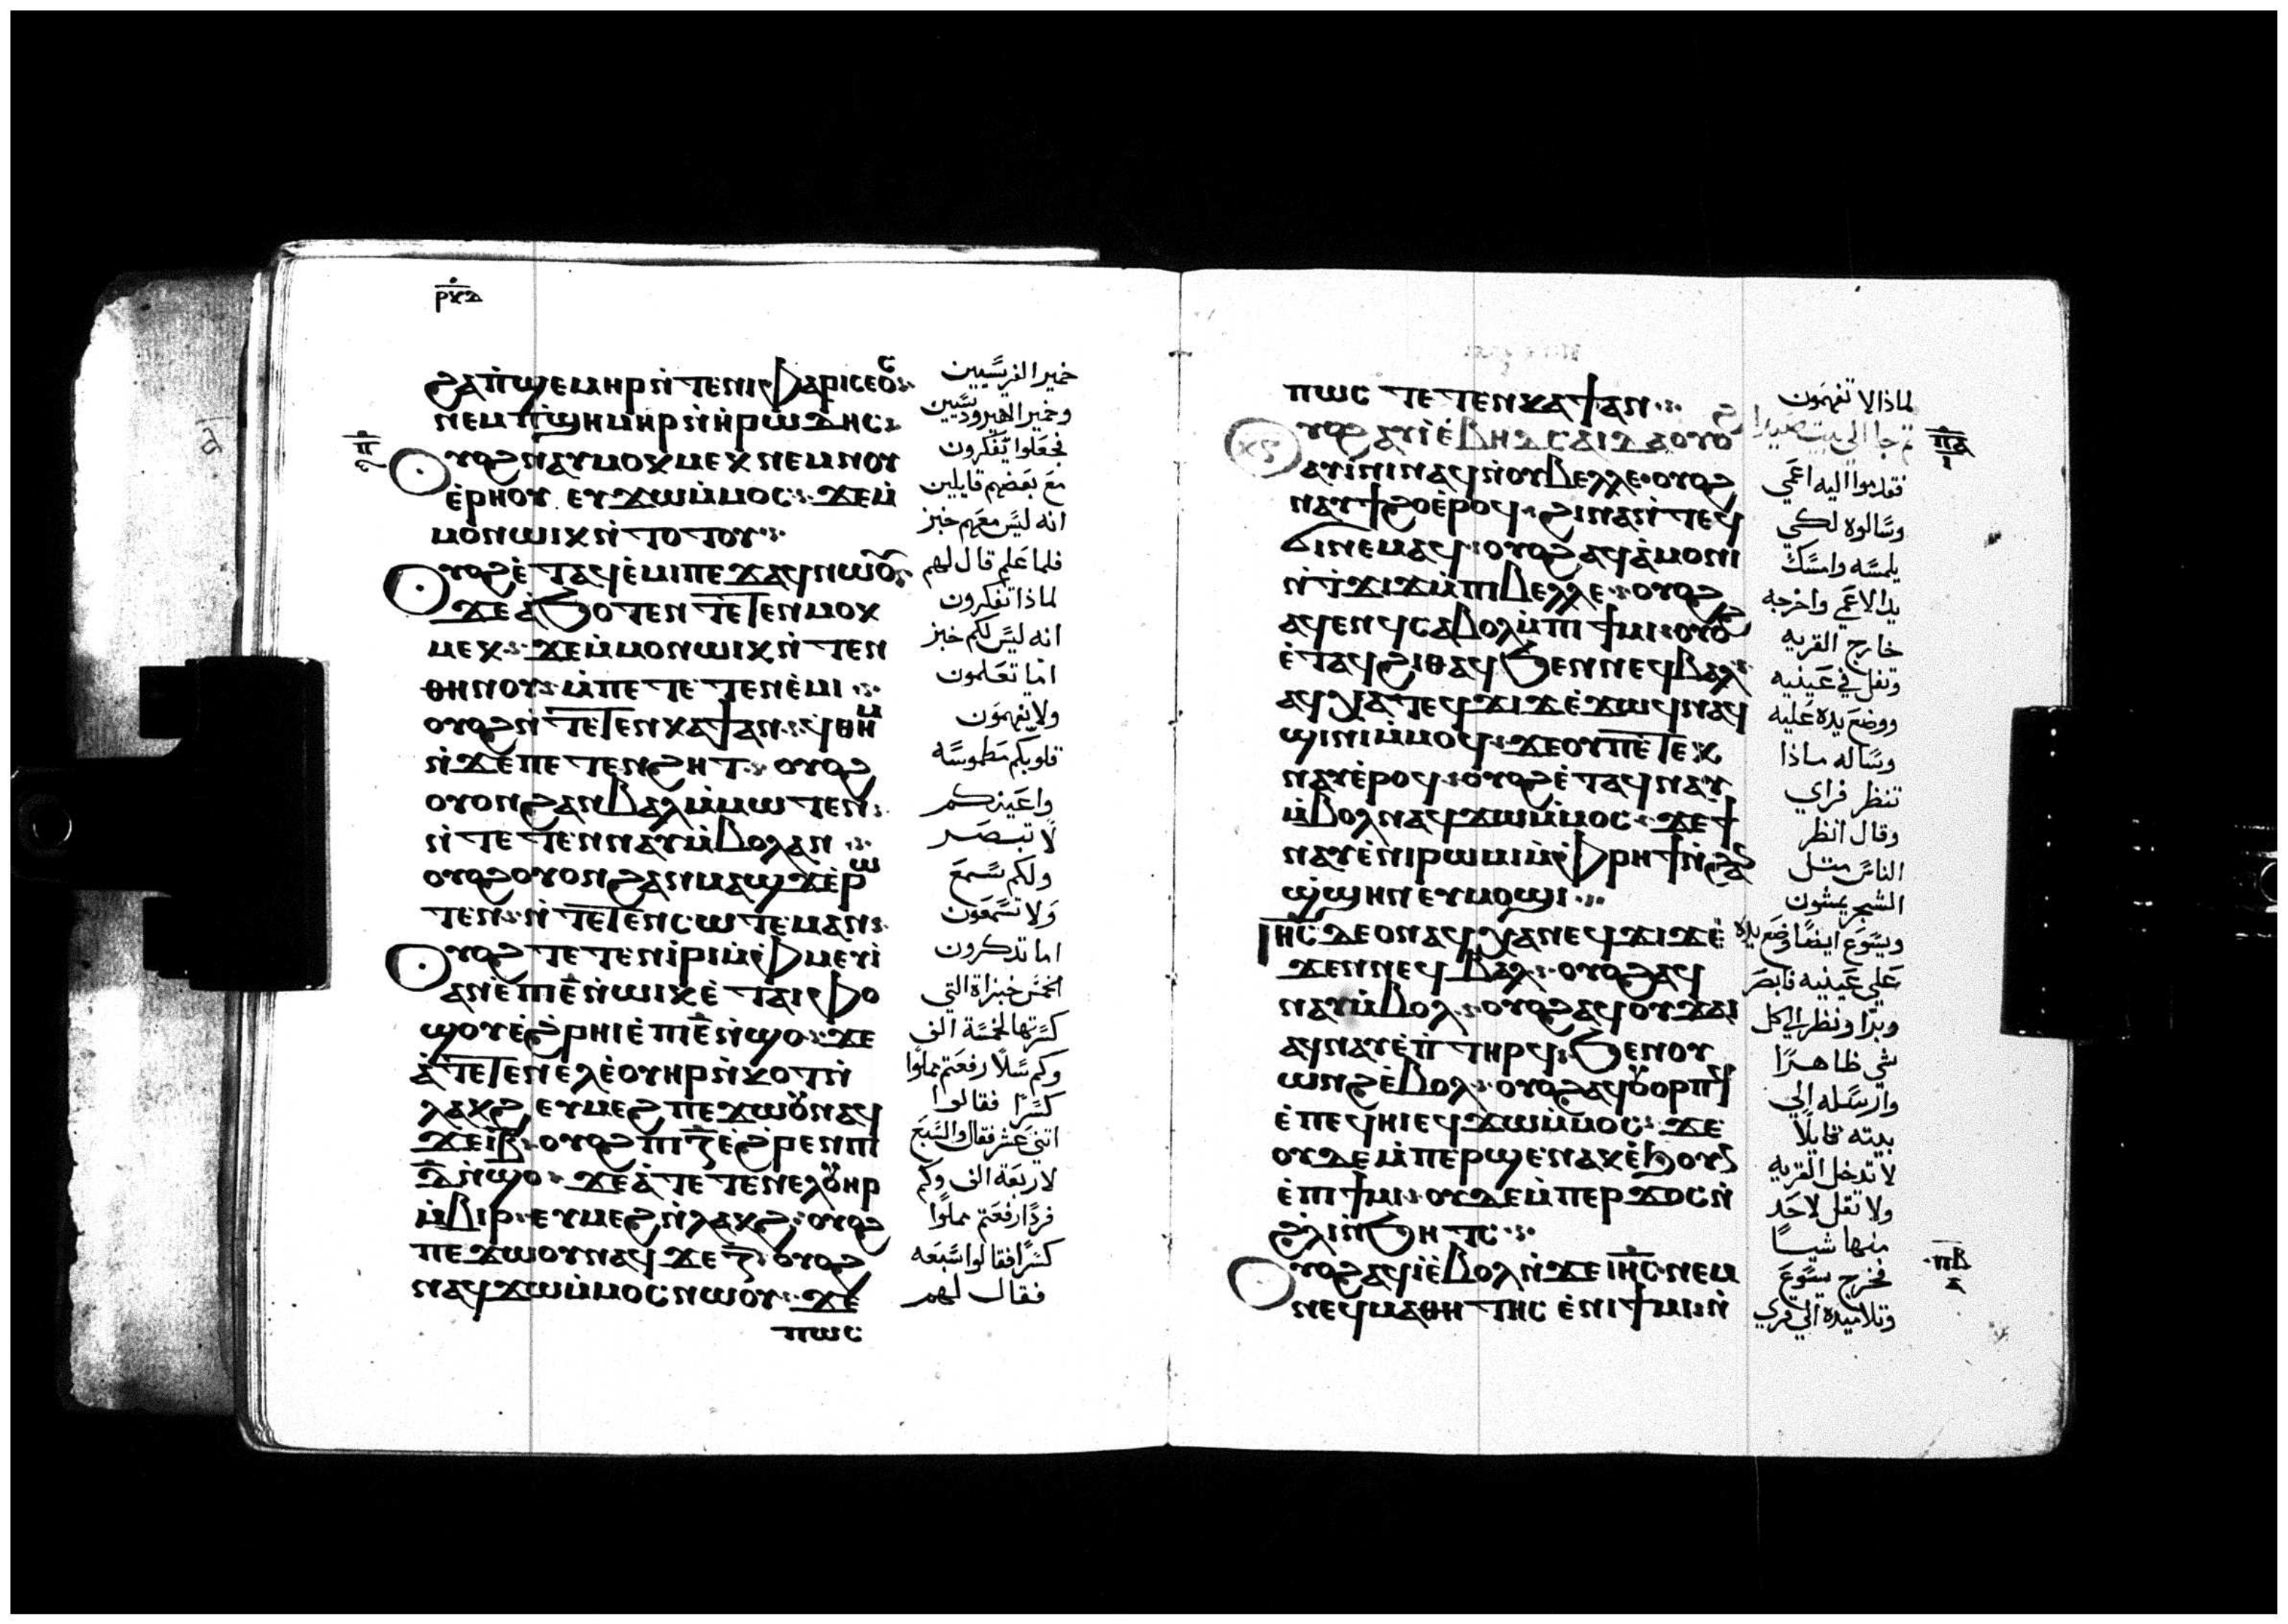 ⲣⲕⲇ
ϩⲁⲡ̀ϣⲉⲙⲏⲣⲛ̀ⲧⲉⲛⲓⲫⲁⲣⲓⲥⲉⲟⲥ
ⲛⲉⲙⲡ̀ϣⲏⲙⲏⲣⲛ̀ⲏⲣⲱⲇⲏⲥ
ⲟⲩⲟϩⲛⲁⲩⲙⲟⲕⲙⲉⲕⲛⲉⲙⲛⲟⲩ
ⲉ̀ⲣⲏⲟⲩ ⲉⲩϫⲱⲙ̀ⲙⲟⲥ ϫⲉⲙ̀
ⲙⲟⲛⲱⲓⲕⲛ̀ⲧⲟⲧⲟⲩ
ⲟⲩⲟϩⲉ̀ⲧⲁϥⲉ̀ⲙⲓⲡⲉϫⲁϥⲛⲱⲟⲩ
ϫⲉⲁ̀ϧⲟⲧⲉⲛ ⲧⲉⲧⲉⲛⲙⲟⲕ
ⲙⲉⲕ ϫⲉⲙ̀ⲙⲟⲛⲱⲓⲕⲛ̀ⲧⲉⲛ
ⲑⲏⲛⲟⲩ ⲙ̀ⲡⲉⲧⲉⲧⲉⲛⲉ̀ⲙⲓ
ⲟⲩⲟϩⲛ̀ⲧⲉⲧⲉⲛⲕⲁϯⲁⲛ ϥ̀ⲑⲏⲙ
ⲛ̀ϫⲉⲡⲉⲧⲉⲛϩⲏⲧ ⲟⲩⲟϩ
ⲟⲩⲟⲛϩⲁⲛⲃⲁⲗⲙ̀ⲙⲱⲧⲉⲛ
ⲛ̀ⲧⲉⲧⲉⲛⲛⲁⲩⲙ̀ⲃⲟⲗⲁⲛ
ⲟⲩⲟϩⲟⲩⲟⲛϩⲁⲛⲙⲁϣϫⲉ̀ⲣⲱ
ⲧⲉⲛ ⲛ̀ⲧⲉⲧⲉⲛⲥⲱⲧⲉⲙⲁⲛ
ⲟⲩⲟϩⲧⲉⲧⲉⲛⲓ̀ⲣⲓⲙ̀ⲫⲙⲉⲩⲓ̀
ⲁⲛⲉ̀ⲡⲓⲉ̅ⲛ̀ⲱⲓⲕⲉ̀ⲧⲁⲓⲫⲟ
ϣⲟⲩⲉ̀ϩ̀ⲣⲏⲓⲉ̀ⲡⲓⲉ̅ⲛ̀ϣⲟ ϫⲉ
ⲁ̀ⲧⲉⲧⲉⲛⲉⲗⲉ̀ⲟⲩⲏⲣⲛ̀ⲕⲟⲧⲛ̀
ⲗⲁⲕϩ ⲉⲩⲙⲉϩ ⲡⲉϫⲱⲟⲩⲛⲁϥ
ϫⲉⲓ̅ⲃ̅ ⲟⲩⲟϩ ⲡⲓⲍ̅ⲉ̀ϩ̀ⲣⲉⲛⲡⲓ
ⲇ̅ⲛ̀ϣⲟ ϫⲉⲁ̀ⲧⲉⲧⲉⲛⲉⲗⲟⲩⲏⲣ
ⲙ̀ⲃⲓⲣ ⲉⲩⲙⲉϩⲛ̀ⲗⲁⲕϩ ⲟⲩⲟϩ
ⲡⲉϫⲱⲟⲩⲛⲁϥϫⲉⲍ̅ ⲟⲩⲟϩ
ⲛⲁϥϫⲱⲙ̀ⲙⲟⲥⲛⲱⲟⲩ ϫⲉ
ⲡⲱⲥ
خمير الفريسيين
وخمير الهيروديسيين
فجعلوا يتفكرون
مع بعضهم قايلين
انه ليس معهم خبز
فلما علم قال لهم
لماذا تفكرون
انه ليس لكم خبز
اما تعلمون
ولا تفهمون
قلوبكم مطموسه
واعينكم
لا تبصر
ولكم تسمع
ولا تسمعون
اما تدكرون
الخمس خبزاة التي
كسرتها لخمسة الف
وكم سلا رفعتم مملوا
كسرا فقالوا
اتني عشر فقال والسبع
لاربعة الف وكم
فردا رفعتم مملوا
كسرا فقالوا سبعه
فقال لهم
ⲡⲱⲥ ⲧⲉⲧⲉⲛⲕⲁϯⲁⲛ
ⲟⲩⲟϩⲁⲩⲓ̀ⲉ̀ⲃⲏⲇⲥⲁⲓⲇⲁⲟⲩⲟϩ
ⲁⲩⲓ̀ⲛⲓⲛⲁϥⲛ̀ⲟⲩⲃⲉⲗⲗⲉ ⲟⲩⲟϩ
ⲛⲁⲩϯϩⲟⲉ̀ⲣⲟϥ ϩⲓⲛⲁⲛ̀ⲧⲉϥ
ϭⲓⲛⲉⲙⲁϥ ⲟⲩⲟϩⲁϥⲁ̀ⲙⲟⲛⲓ
ⲛ̀ⲧ̀ϫⲓϫⲙ̀ⲡⲓⲃⲉⲗⲗⲉ ⲟⲩⲟϩ
ⲁϥⲉⲛϥⲥⲁⲃⲟⲗⲙ̀ⲡⲓϯⲙⲓ ⲟⲩⲟϩ
ⲉ̀ⲧⲁϥϩⲓⲑⲁϥϧⲉⲛⲛⲉϥⲃⲁⲗ
ⲁϥⲭⲁⲧⲉϥϫⲓϫⲉ̀ϫⲱϥⲛⲁϥ
ϣⲓⲛⲓⲙ̀ⲙⲟϥ ϫⲉⲟⲩⲡⲉⲧⲉⲕ
ⲛⲁⲩⲉ̀ⲣⲟϥ ⲟⲩⲟϩⲉ̀ⲧⲁϥⲛⲁⲩ
ⲙ̀ⲃⲟⲗⲛⲁϥϫⲱⲙ̀ⲙⲟⲥ ϫⲉϯ
ⲛⲁⲩⲉ̀ⲛⲓⲣⲱⲙⲓⲙ̀ⲫⲣⲏϯⲛ̀ϩⲁⲛ
ϣ̀ϣⲏⲛⲉⲩⲙⲟϣⲓ
ⲓⲏⲥ ⲇⲉⲟⲛⲁϥⲭⲁⲛⲉϥϫⲓϫⲉ̀
ϫⲉⲛⲛⲉϥⲃⲁⲗ ⲟⲩⲟϩⲁϥ
ⲛⲁⲩⲙ̀ⲃⲟⲗ ⲟⲩⲟϩⲁϥⲟⲩϫⲁⲓ
ⲁϥⲛⲁⲩⲉ̀ⲡ̀ⲧⲏⲣϥ ϧⲉⲛⲟⲩ
ⲱⲛϩⲉ̀ⲃⲟⲗ ⲟⲩⲟϩⲁϥⲟⲩⲟⲣⲡϥ
ⲉ̀ⲡⲉϥⲏⲓⲉϥϫⲱⲙ̀ⲙⲟⲥ ϫⲉ
ⲟⲩⲇⲉⲙ̀ⲡⲉⲣϣⲉⲛⲁⲕⲉ̀ϧⲟⲩⲛ
ⲉ̀ⲡⲓϯⲙⲓ ⲟⲩⲇⲉⲙ̀ⲡⲉⲣϫⲟⲥⲛ̀
ϩⲗⲓⲛ̀ϧⲏⲧⲥ
ⲟⲩⲟϩⲁϥⲓ̀ⲉ̀ⲃⲟⲗⲛ̀ϫⲉⲓⲏⲥ ⲛⲉⲙ
ⲛⲉϥⲙⲁⲑⲏⲧⲏⲥ ⲉ̀ⲛⲓϯⲙⲓⲛ̀
لماذا لا تفهمون
تم جا الي بيت صيدا
فقدموا اليه اعمي
وسالوه لكي
يلمسه وامسك
يد الاعمي واخرجه
خارج القريه
وتفل في عينيه
ووضع يده عليه
وساله ماذا
تنظر فراي
وقال انظر
الناس متل
الشجر يمشون
ويسوع ايضا وضع يده
علي عينيه فابصر
وبرا ونظر الي كل
شي ظاهرا
وارسله الي
بيته قايلا
لا تدخل القريه
ولا تقل لاحد
منها شيا
فخرج يسوع
وتلاميده الي قري
ⲡⲁ
ⲡⲃ